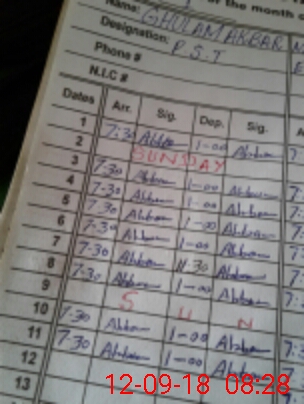 or the month
Name: GHULAM AKBAR
Designation: P.S.T
Phone #
N.I.C #
Dates Arr. Sig. Dep. Sig.
1 7:30 Akbar 1-00 Akbar
2 SUNDAY
3 7:30 Akbar 1-00 Akbar
4 7:30 Akbar 1-00 Akbar
5 7:30 Akbar 1-00 Akbar
6 7:30 Akbar 1-00 Akbar
7 7:30 Akbar 11:30 Akbar
8 7:30 Akbar 1-00 Akbar
9 S U N
10 7:30 Akbar 1-00 Akbar
11 7:30 Akbar 1-00 Akbar
12
13
12-09-18 08:28